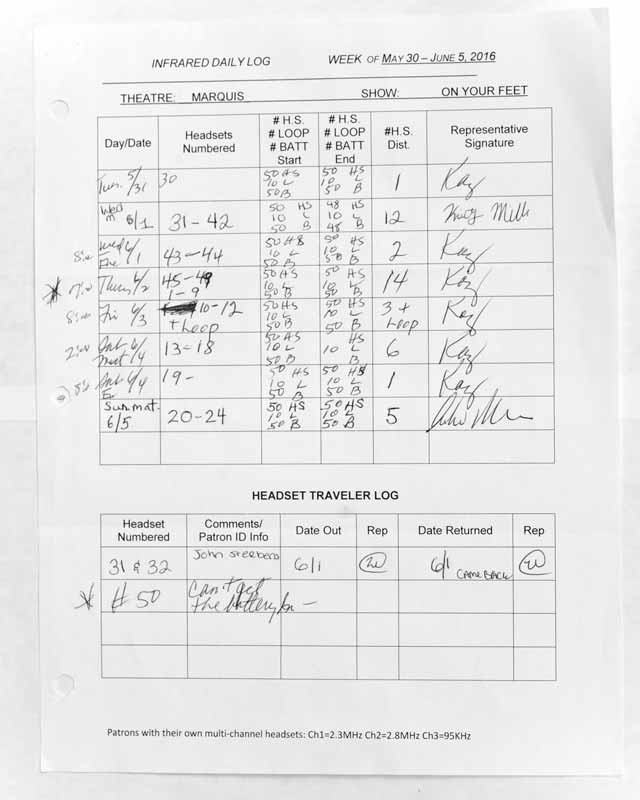 INFRARED DAILY LOG WEEK OF MAY 30 – JUNE 5, 2016
THEATRE: MARQUIS SHOW: ON YOUR FEET
Day/Date Headsets Numbered # H.S. # LOOP # BATT Start # H.S. # LOOP # BATT End #H.S. Dist. Representative Signature
Tues. 5/31 30 50 HS 10 L 50 B 50 HS 10 L 50 B 1 Kay
Wed m 6/1 31-42 50 HS 10 L 50 B 48 HS 10 L 48 B 12
8:00 Wed 6/1 Eve 43-44 50 HS 10 L 50 B 50 HS 10 L 50 B 2 Kay
* 7:00 Thurs 6/2 45-49 1-9 50 HS 10 L 50 B 50 HS 10 L 50 B 14 Kay
8:00 Fri 6/3 10-12 + Loop 50 HS 10 L 50 B 50 HS 10 L 50 B 3 + Loop Kay
2:00 Sat 6/4 mat 13-18 50 HS 10 L 50 B 10 L HS 50 B 6 Kay
8:00 Sat 6/4 Ev 19- 50 HS 10 L 50 B 50 HS 10 L 50 B 1 Kay
Sun. mat. 6/5 20-24 50 HS 10 L 50 B 50 HS 10 L 50 B 5
HEADSET TRAVELER LOG
Headset Numbered Comments/ Patron ID Info Date Out Rep Date Returned Rep
31 & 32 John 6/1 6/1 CAME BACK
* # 50 Can't get the battery in -
Patrons with their own multi-channel headsets: Ch1=2.3MHz Ch2=2.8MHz Ch3=95KHz